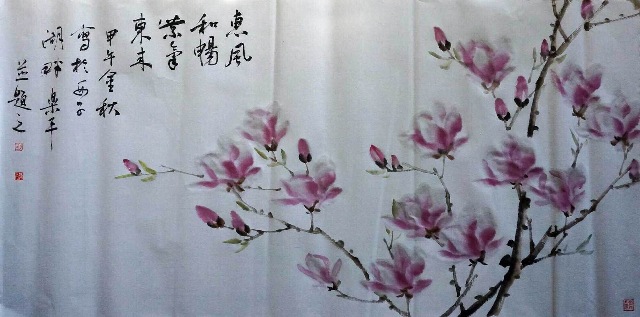 惠風
和暢
紫氣
東来
甲午金秋
寫於西子
湖畔樂平
並題之